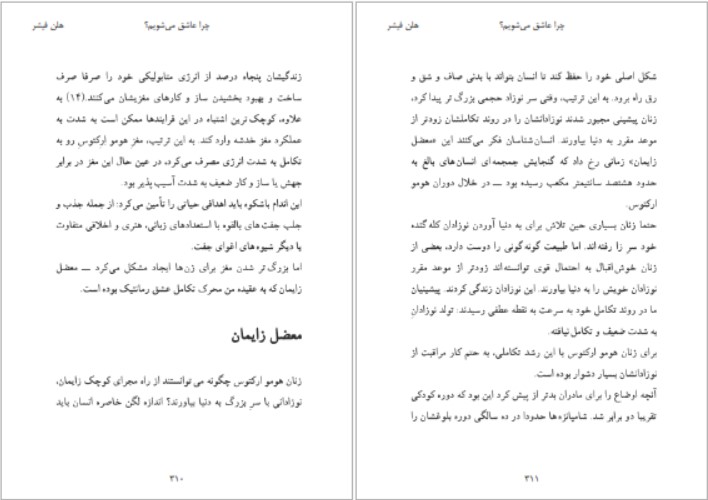 چرا عاشق می‌شویم؟
هلن فیشر
زندگیشان پنجاه درصد از انرژی متابولیکی خود را صرفا صرف
ساخت و بهبود بخشیدن ساز و کارهای مغزیشان می‌کنند.(۱۴) به
علاوه، کوچک ترین اشتباه در این فرایندها ممکن است به شدت به
عملکرد مغز خدشه وارد کند. به این ترتیب، مغز هومو ارکتوس رو به
تکامل به شدت انرژی مصرف می‌کرد، در عین حال این مغز در برابر
جهش یا ساز و کار ضعیف به شدت آسیب پذیر بود.
این اندام باشکوه باید اهدافی حیاتی را تأمین می‌کرد: از جمله جذب و
جلب جفت‌های بالقوه با استعدادهای زبانی، هنری و اخلاقی متفاوت
یا دیگر شیوه‌های اغوای جفت.
اما بزرگ تر شدن مغز برای زن‌ها ایجاد مشکل می‌کرد — معضل
زایمان که به عقیده من محرک تکامل عشق رمانتیک بوده است.
معضل زایمان
زنان هومو ارکتوس چگونه می توانستند از راه مجرای کوچک زایمان،
نوزادانی با سر بزرگ به دنیا بیاورند؟ اندازه لگن خاصره انسان باید
۳۱۰
چرا عاشق می‌شویم؟
هلن فیشر
شکل اصلی خود را حفظ کند تا انسان بتواند با بدنی صاف و شق و
رق راه برود. به این ترتیب، وقتی سر نوزاد حجمی بزرگ تر پیدا کرد،
زنان پیشینی مجبور شدند نوزادانشان را در روند تکاملشان زودتر از
موعد مقرر به دنیا بیاورند. انسان‌شناسان فکر می‌کنند این «معضل
زایمان» زمانی رخ داد که گنجایش جمجمه‌ای انسان‌های بالغ به
حدود هشتصد سانتیمتر مکعب رسیده بود — در خلال دوران هومو
ارکتوس.
حتما زنان بسیاری حین تلاش برای به دنیا آوردن نوزادان کله گنده
خود سر زا رفته‌اند. اما طبیعت گونه گونی را دوست دارد، بعضی از
زنان خوش‌اقبال به احتمال قوی توانسته‌اند زودتر از موعد مقرر
نوزادان خویش را به دنیا بیاورند. این نوزادان زندگی کردند. پیشینیان
ما در روند تکامل خود به سرعت به نقطه عطفی رسیدند: تولد نوزادانِ
به شدت ضعیف و تکامل نیافته.
برای زنان هومو ارکتوس با این رشد تکاملی، به حتم کار مراقبت از
نوزادانشان بسیار دشوار بوده است.
آنچه اوضاع را برای مادران بدتر از پیش کرد این بود که دوره کودکی
تقریبا دو برابر شد. شامپانزه‌ها حدودا در ده سالگی دوره بلوغشان را
۳۱۱